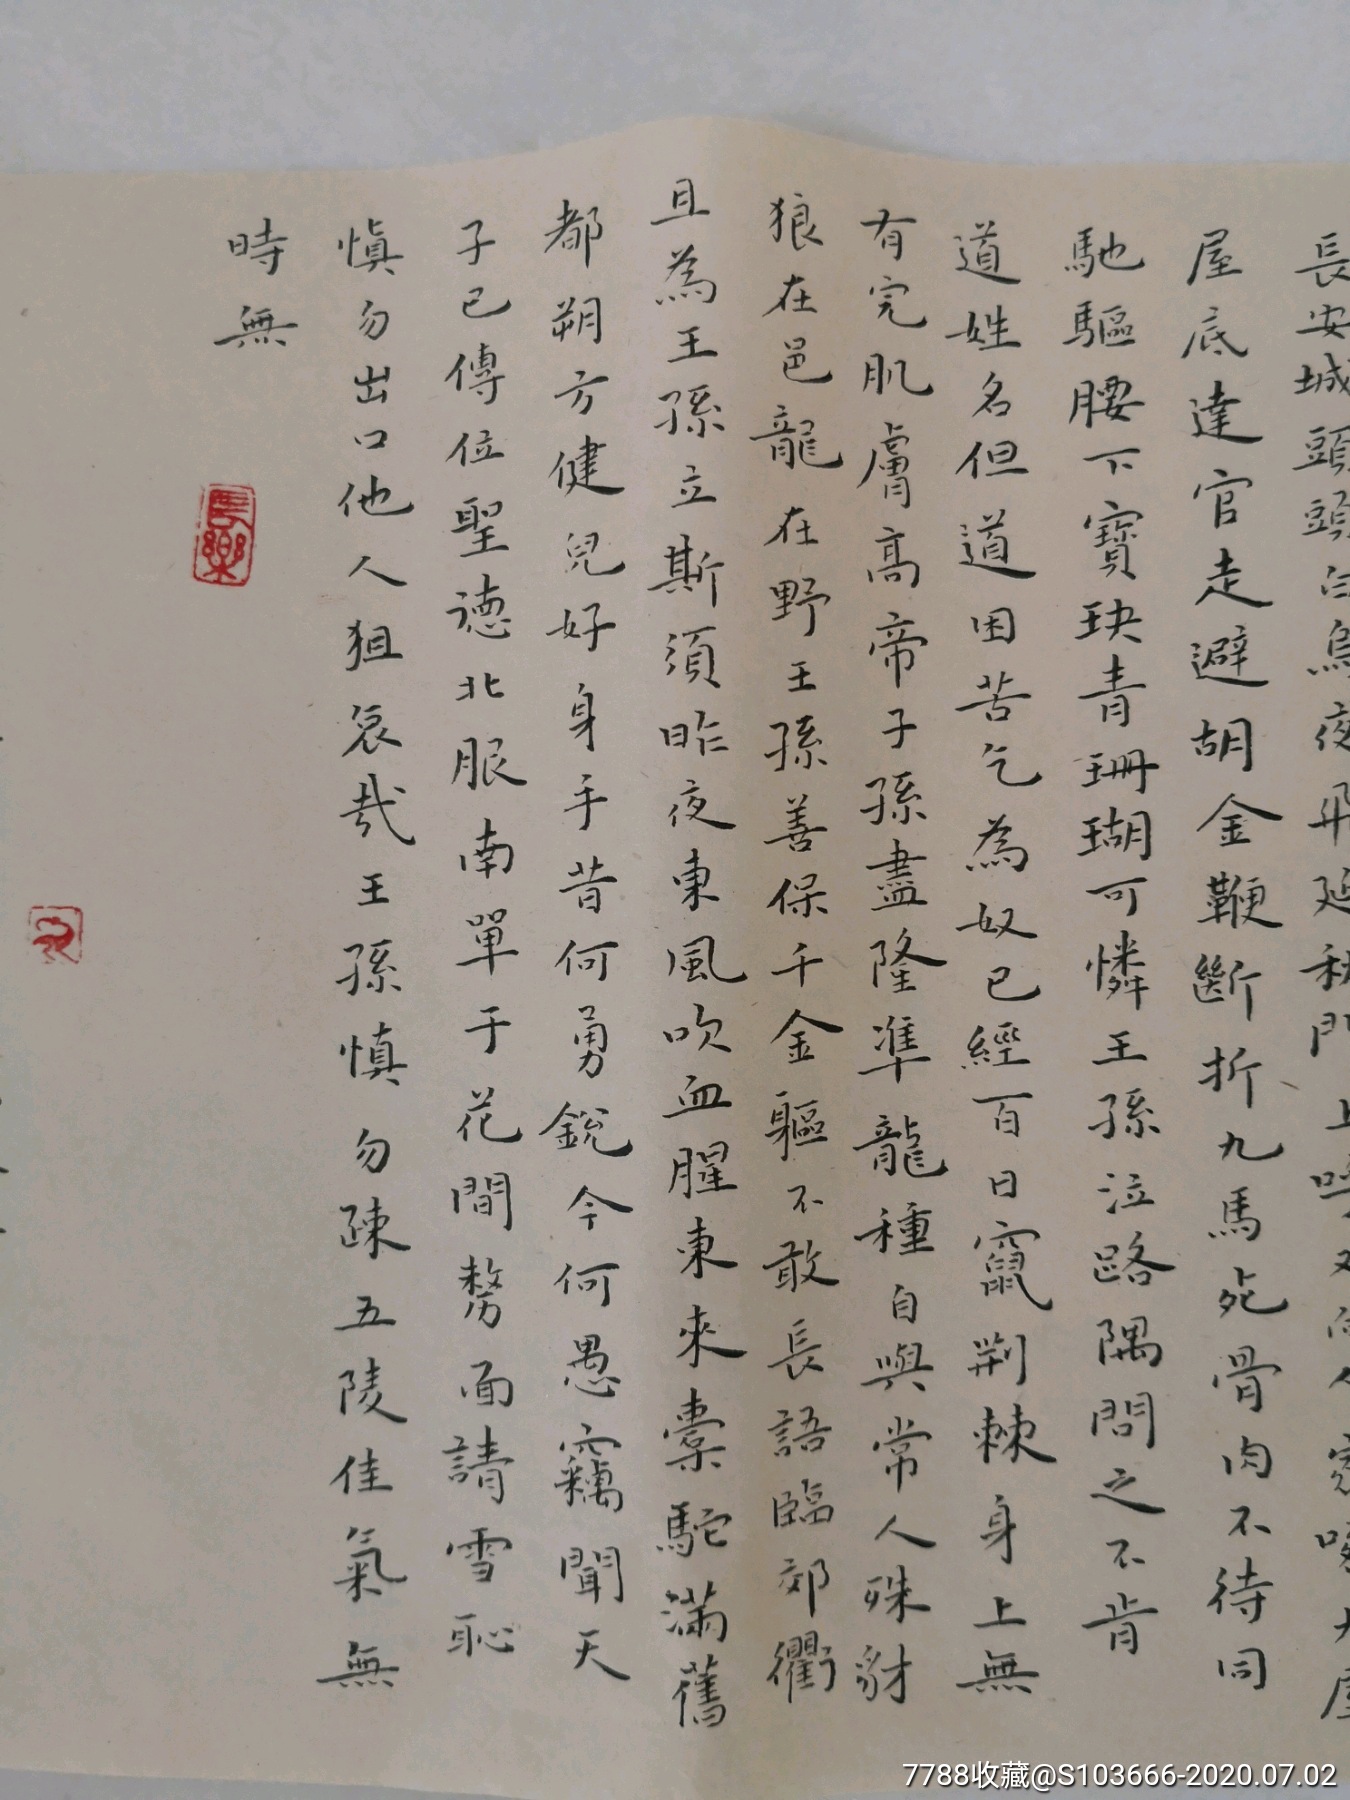 長安城頭頭白烏夜飛延秋門上呼又向人家啄大屋
屋底達官走避胡金鞭斷折九馬死骨肉不待同
馳驅腰下寶玦青珊瑚可憐王孫泣路隅問之不肯
道姓名但道困苦乞為奴已經百日竄荆棘身上無
有完肌膚高帝子孫盡隆準龍種自與常人殊豺
狼在邑龍在野王孫善保千金軀不敢長語臨郊衢
且為王孫立斯須昨夜東風吹血腥東來橐駝滿舊
都朔方健兒好身手昔何勇銳今何愚竊聞天
子已傳位聖德北服南單于花間剺面請雪恥
慎勿出口他人狙哀哉王孫慎勿疎五陵佳氣無
時無
長樂
7788收藏@S103666-2020.07.02